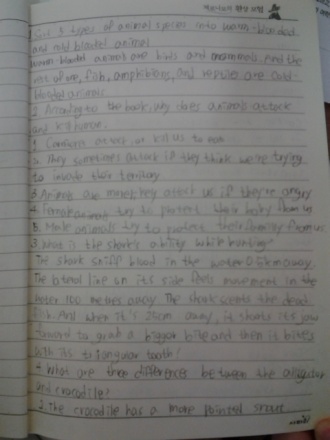 1. Sort 5 types of animal species into warm-blooded
and cold blooded animal
warm-blooded animal are birds and mammals. And the
rest of one, fish, amphibians, and reptile are cold-
blooded animals
2. According to the book, why does animals attack
and kill human.
1. Carnivores
2. They sometimes attack if they think we're trying
to invade their territory
3. Animals are monkey attack us if they're angry
4. Female animals try to protect their baby from us
5. Male animals try to protect their family from us
3. What is the shark's ability while hunting?
The shark sniff blood in the water away.
The lateral line on its side feels movement in the
water 100 metres away. The shark scents the dead
fish. And when it's 25cm away, it thrusts its jaw
forward to grab a bigger bite and then it bites
with its triangular tooth!
4. What are three differences between the alligator
and crocodile?
1. The crocodile has a more pointed snout